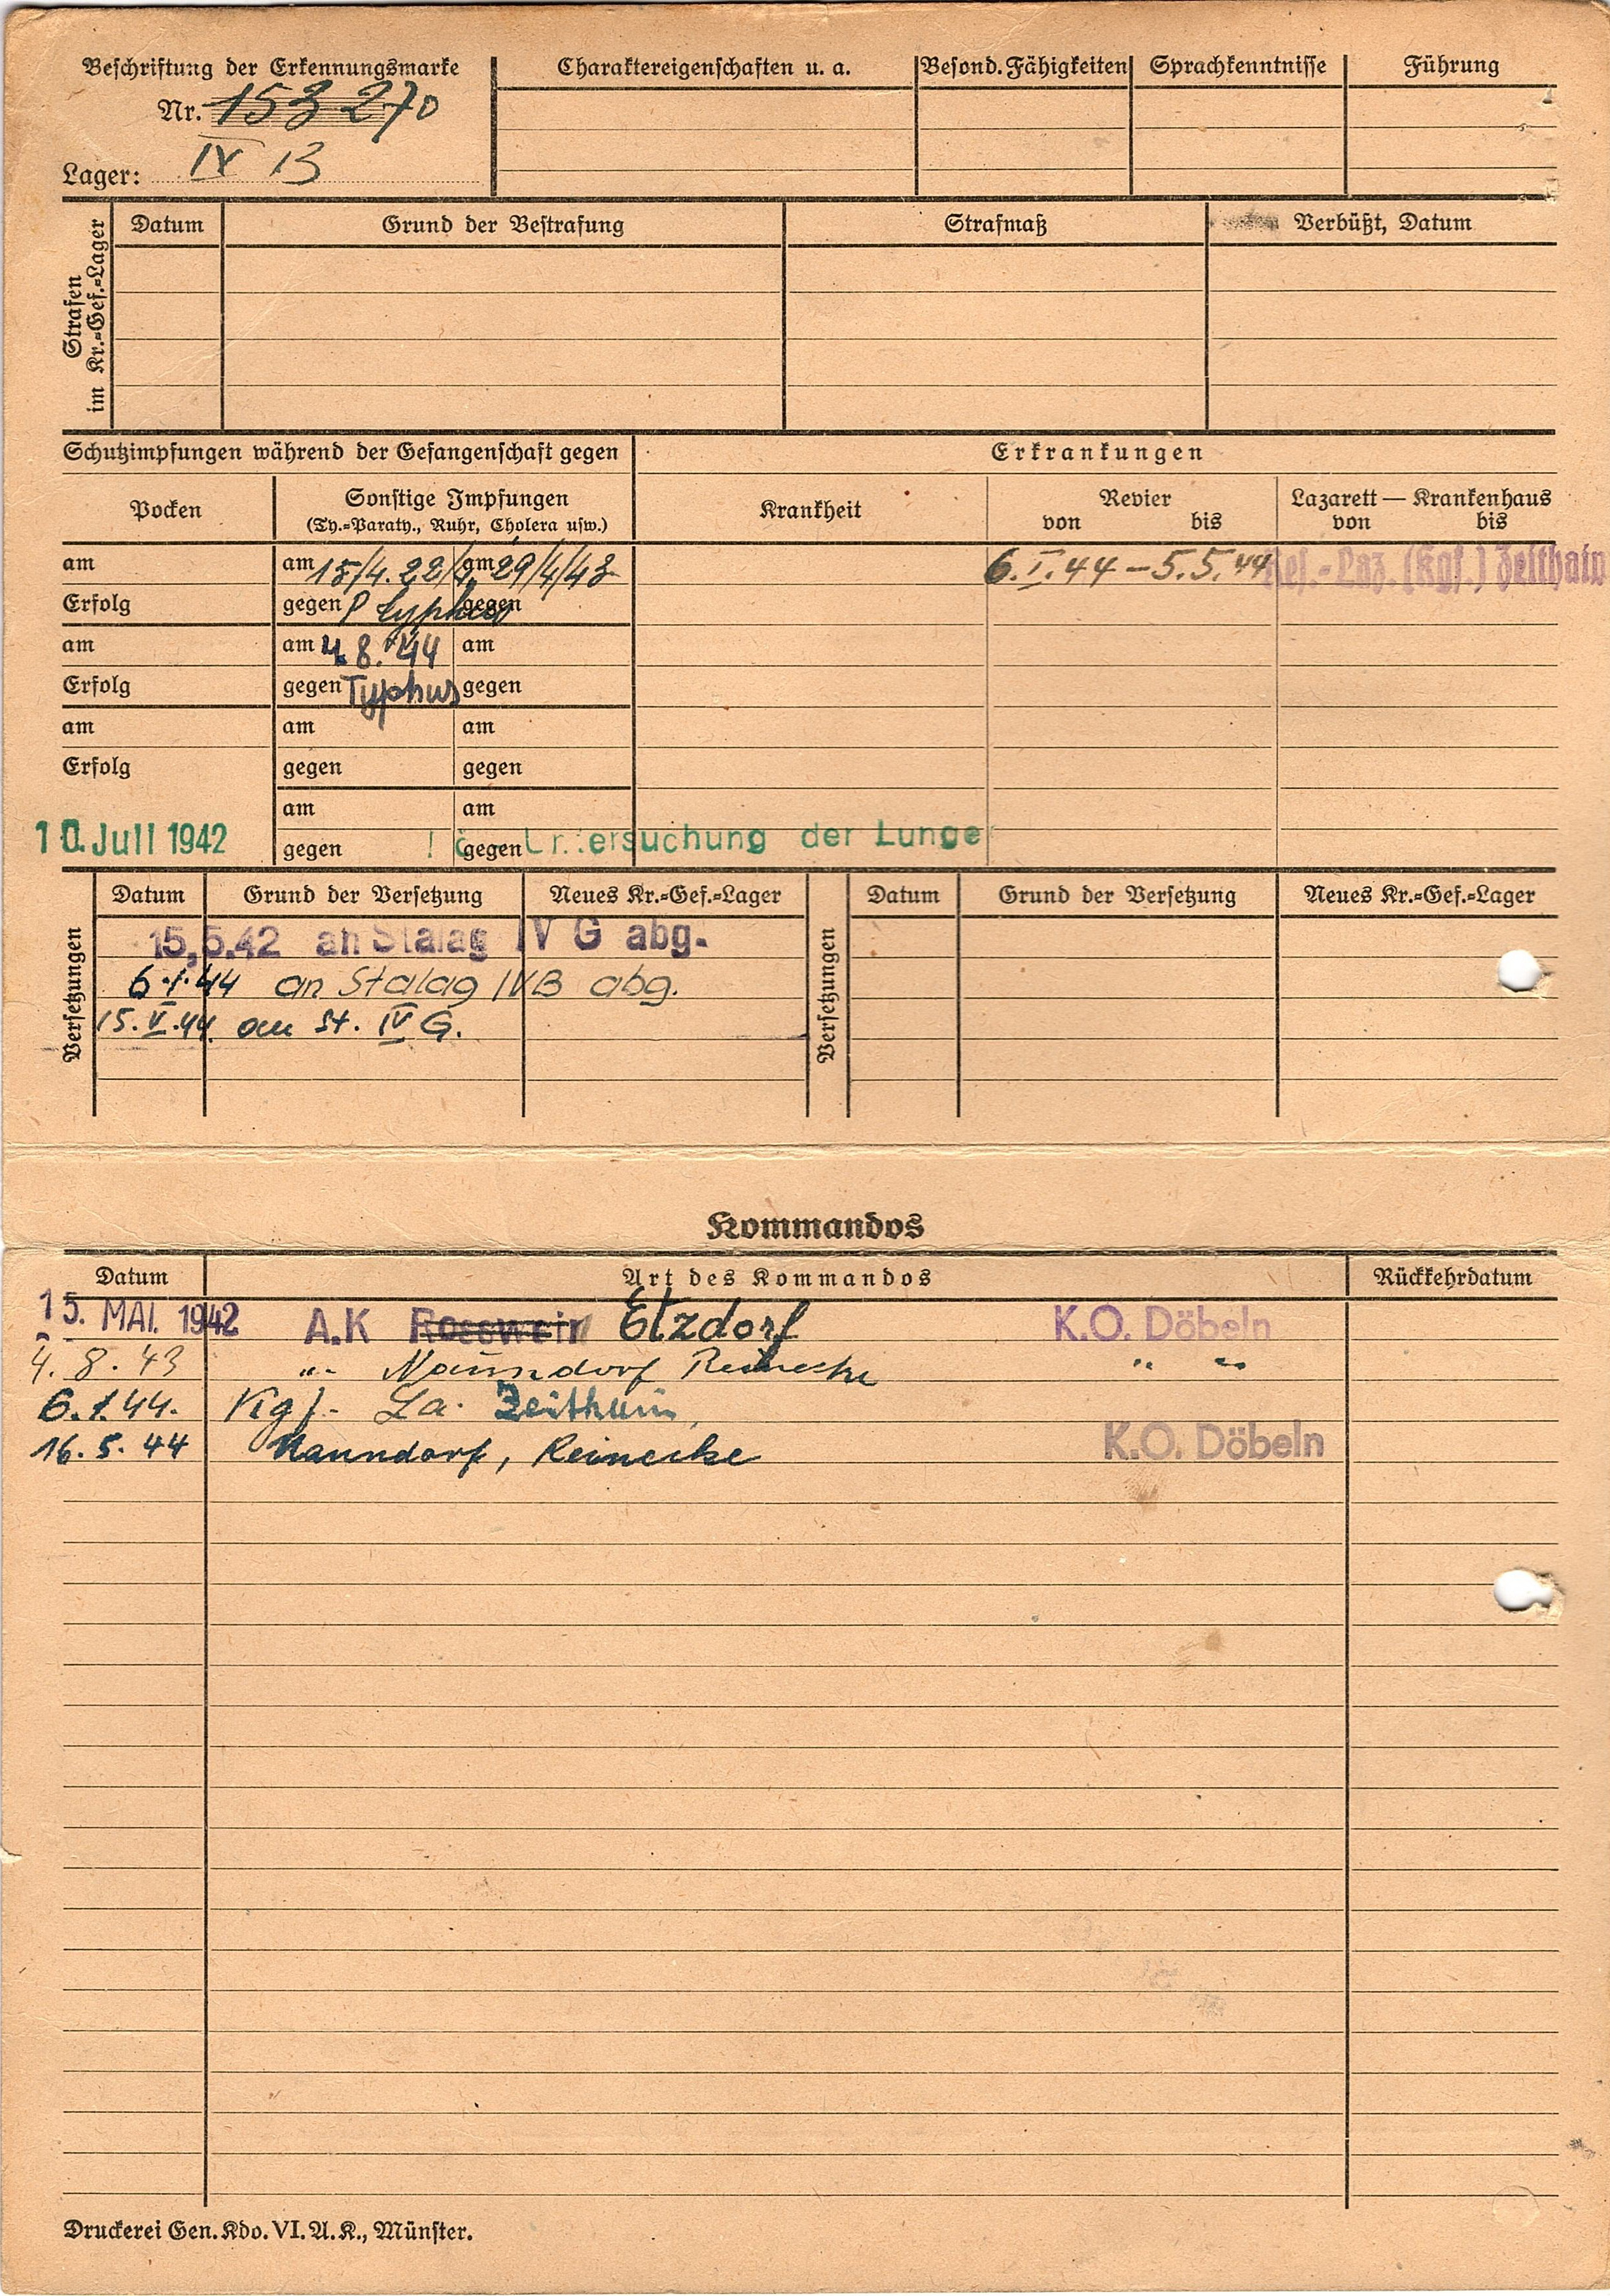 Beschriftung der Erkennungsmarke
Nr. 153270
Lager: IV B
Charaktereigenschaften u. a.
Besond. Fähigkeiten
Sprachkenntnisse
Führung
Strafen
im Kr.=Gef.=Lager
Datum
Grund der Bestrafung
Strafmaß
Verbüßt, Datum
Schutzimpfungen während der Gefangenschaft gegen
Erkrankungen
Pocken
Sonstige Impfungen
(Ty.=Paraty., Ruhr, Cholera usw.)
Krankheit
Revier
von bis
Lazarett — Krankenhaus
von bis
am am 15/4. 22/4. am 29/4/43
6.I.44 – 5.5.44 Res.-Laz. (Kgf.) Zeithain
Erfolg gegen P typhus gegen
am am 4.8.44 am
Erfolg gegen Typhus gegen
am am am
Erfolg gegen gegen
am am
10. Juli 1942 gegen gegen Untersuchung der Lunge
Versetzungen
Datum Grund der Versetzung Neues Kr.=Gef.=Lager
15.5.42 an Stalag IV G abg.
6.1.44 an Stalag IVB abg.
15.V.44. an St. IV G.
Versetzungen
Datum Grund der Versetzung Neues Kr.=Gef.=Lager
Kommandos
Datum Art des Kommandos Rückkehrdatum
15. MAI. 1942 A.K Rosswein Etzdorf K.O. Döbeln
4.8.43 " Naundorf Reinecke " "
6.1.44. Kgf. La. Zeithain
16.5.44 Naundorf, Reinecke K.O. Döbeln
Druckerei Gen. Kdo. VI. A. K., Münster.